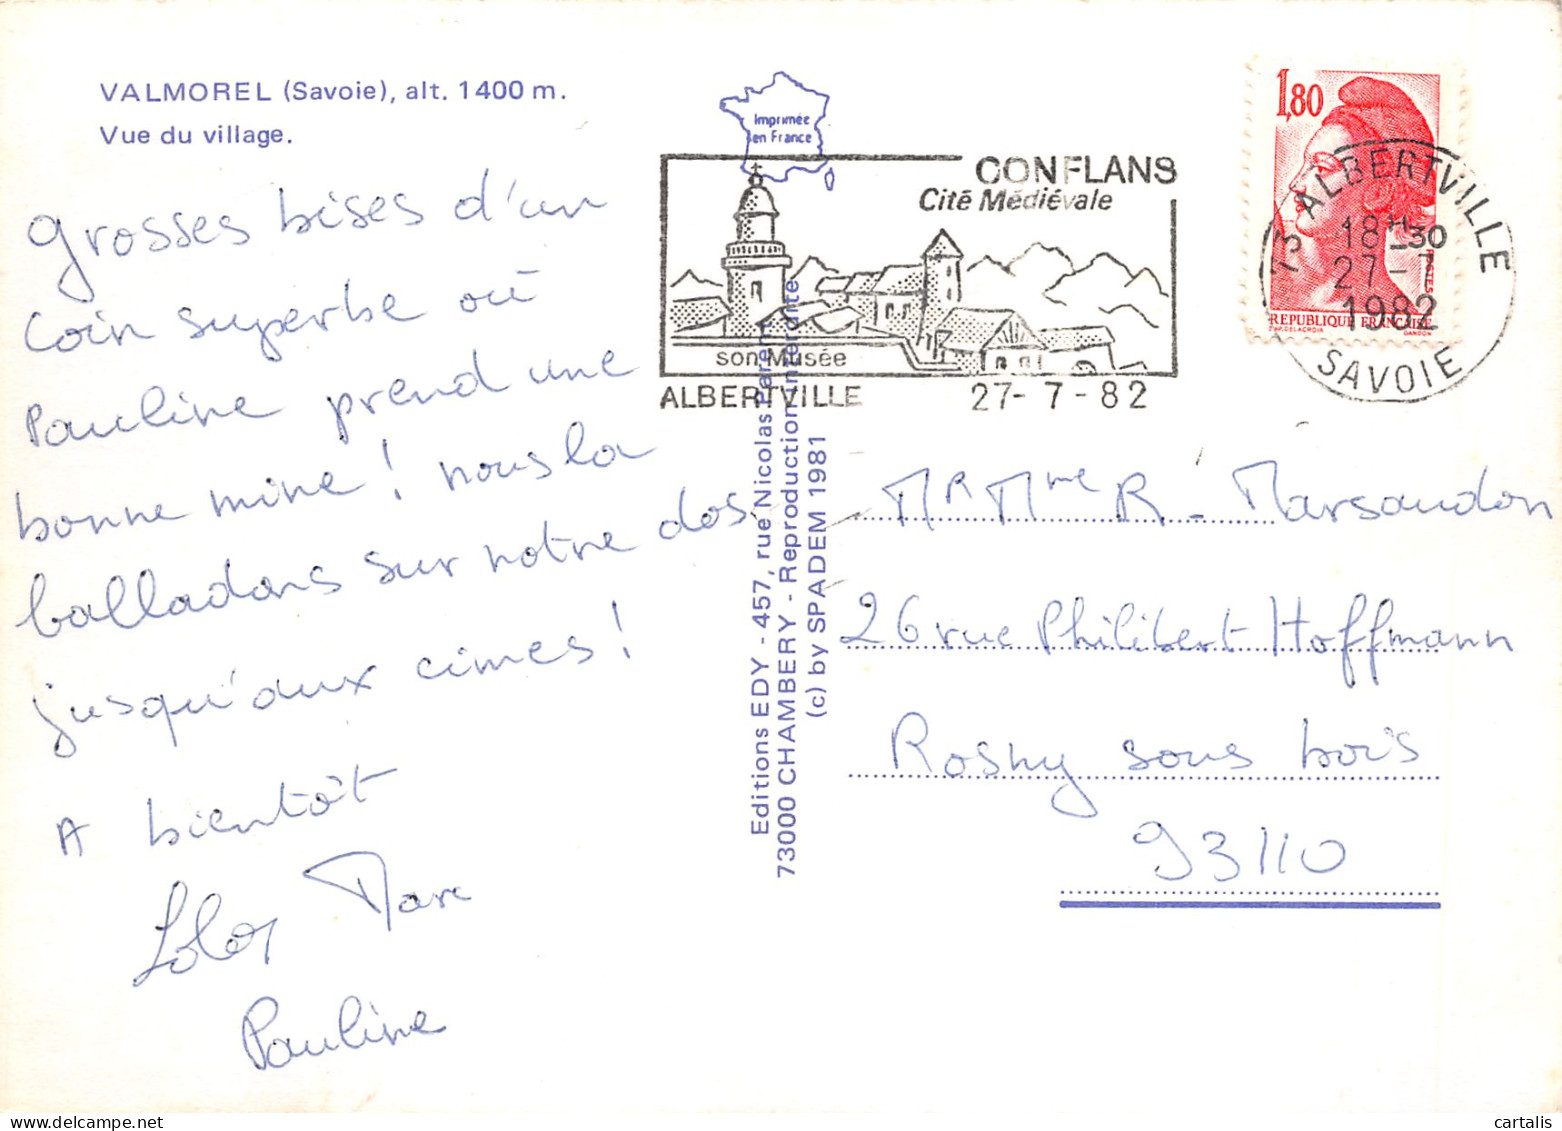 VALMOREL (Savoie), alt. 1400 m.
Vue du village.
grosses bises d'un
coin superbe où
Pauline prend une
bonne mine! nous la
balladons sur notre dos
jusqu'aux cimes!
A bientôt
Marc
Pauline
Imprimée
en France
CONFLANS
Cité Médiévale
son Musée
ALBERTVILLE 27-7-82
1,80
REPUBLIQUE FRANÇAISE
D'AP. DELACROIX GANDON
73 ALBERTVILLE
18H30
27-7
1982
SAVOIE
Editions EDY - 457, rue Nicolas Parent
73000 CHAMBERY - Reproduction interdite
(c) by SPADEM 1981
Mr Mme R. Marsaudon
26 rue Philibert Hoffmann
Rosny sous bois
93110
cartalis